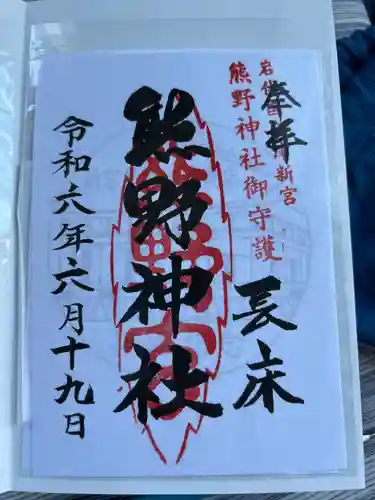 奉拝
岩代國 新宮
熊野神社御守護
長床
熊野神社
令和六年六月十九日